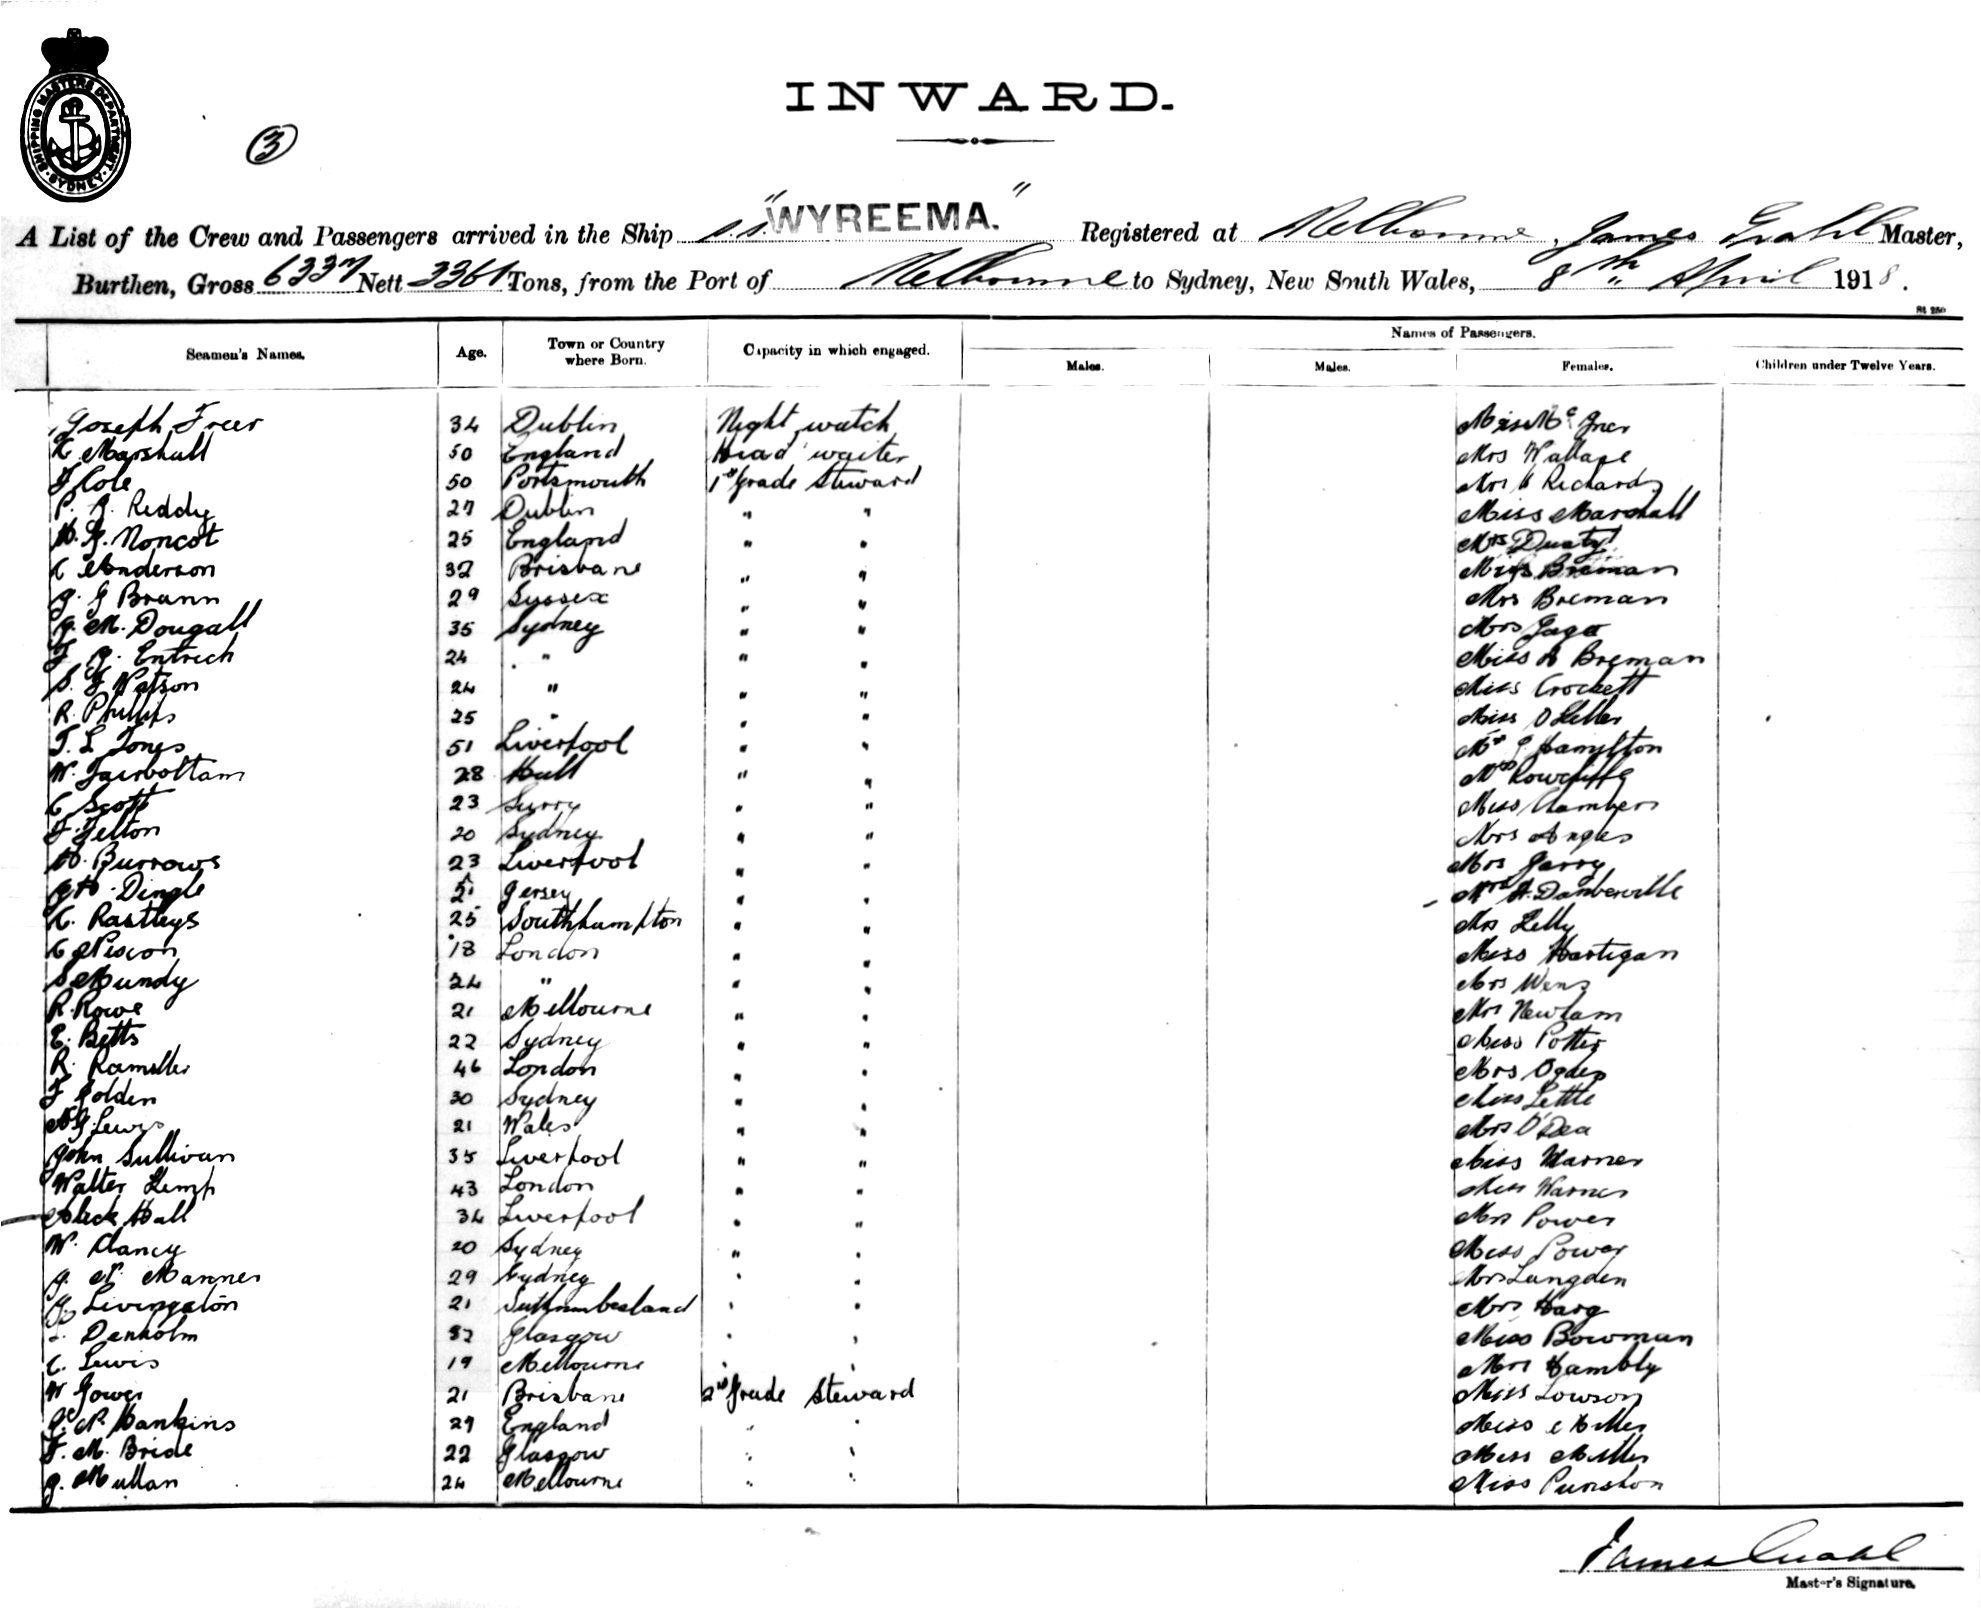 SHIPPING MASTERS DEPARTMENT
SYDNEY
3
INWARD.
A List of the Crew and Passengers arrived in the Ship s.s. "WYREEMA." Registered at Melbourne, James Grahl Master,
Burthen, Gross 6337 Nett 3361 Tons, from the Port of Melbourne to Sydney, New South Wales, 8th April 1918.
Names of Passengers.
Seamen's Names. Age. Town or Country where Born. Capacity in which engaged. Males. Males. Females. Children under Twelve Years.
Joseph Freer 34 Dublin Night watch Miss Mc
Marshall 50 England Head waiter Mrs Wallace
F Cole 50 Portsmouth 1st Grade Steward Mrs Richards
P. J. Reddy 27 Dublin " " Miss Marshall
H. G. Noncot 25 England " " Mrs Dusty
C Anderson 32 Brisbane " " Miss Breman
J. G Brann 29 Sussex " " Mrs Breman
J. M. Dougall 35 Sydney " " Mrs Gago
F. J. Entrich 24 " " " Miss A Breman
S. F Watson 24 " " " Miss Crockett
R. Phillips 25 " " " Miss
T. L Jones 51 Liverpool " " Hamilton
W. Fairbottam 28 Hull " " Mrs Rowcliffe
C Scott 23 Surry " " Miss Chambers
F. Felton 20 Sydney " " Mrs Angus
H. Burrows 23 Liverpool " " Mrs Garry
Dingle Jersey " " Mrs A. Danberville
Rastleys 25 Southhampton " " Mrs Kelly
C Nixon 18 London " " Miss Hartigan
S Mundy 24 " " " Mrs
R. Rowe 21 Melbourne " " Mrs Newlam
E. Betts 22 Sydney " " Miss Potter
R. 46 London " " Mrs Ogden
F Golden 30 Sydney " " Miss Little
Lewis 21 Wales " " Mrs O'Dea
John Sullivan 35 Liverpool " " Miss Warner
Walter Kemp 43 London " " Miss Warner
Aleck Hall 34 Liverpool " " Mrs Power
W. Clancy 20 Sydney " " Miss Power
J. N. Manner 29 Sydney " " Mrs Langden
J. Livingston 21 " " Mrs Harg
Denholm 32 Glasgow " " Miss Bowman
C. Lewis 19 Melbourne " " Mrs Hambly
W Gower 21 Brisbane 2nd Grade Steward Miss Lowson
J. N. Hankins 29 England " " Miss E Miller
F. M. Bride 22 Glasgow " " Miss Miller
J. Mullan 24 Melbourne " " Miss Punshon
James Grahl
Master's Signature.